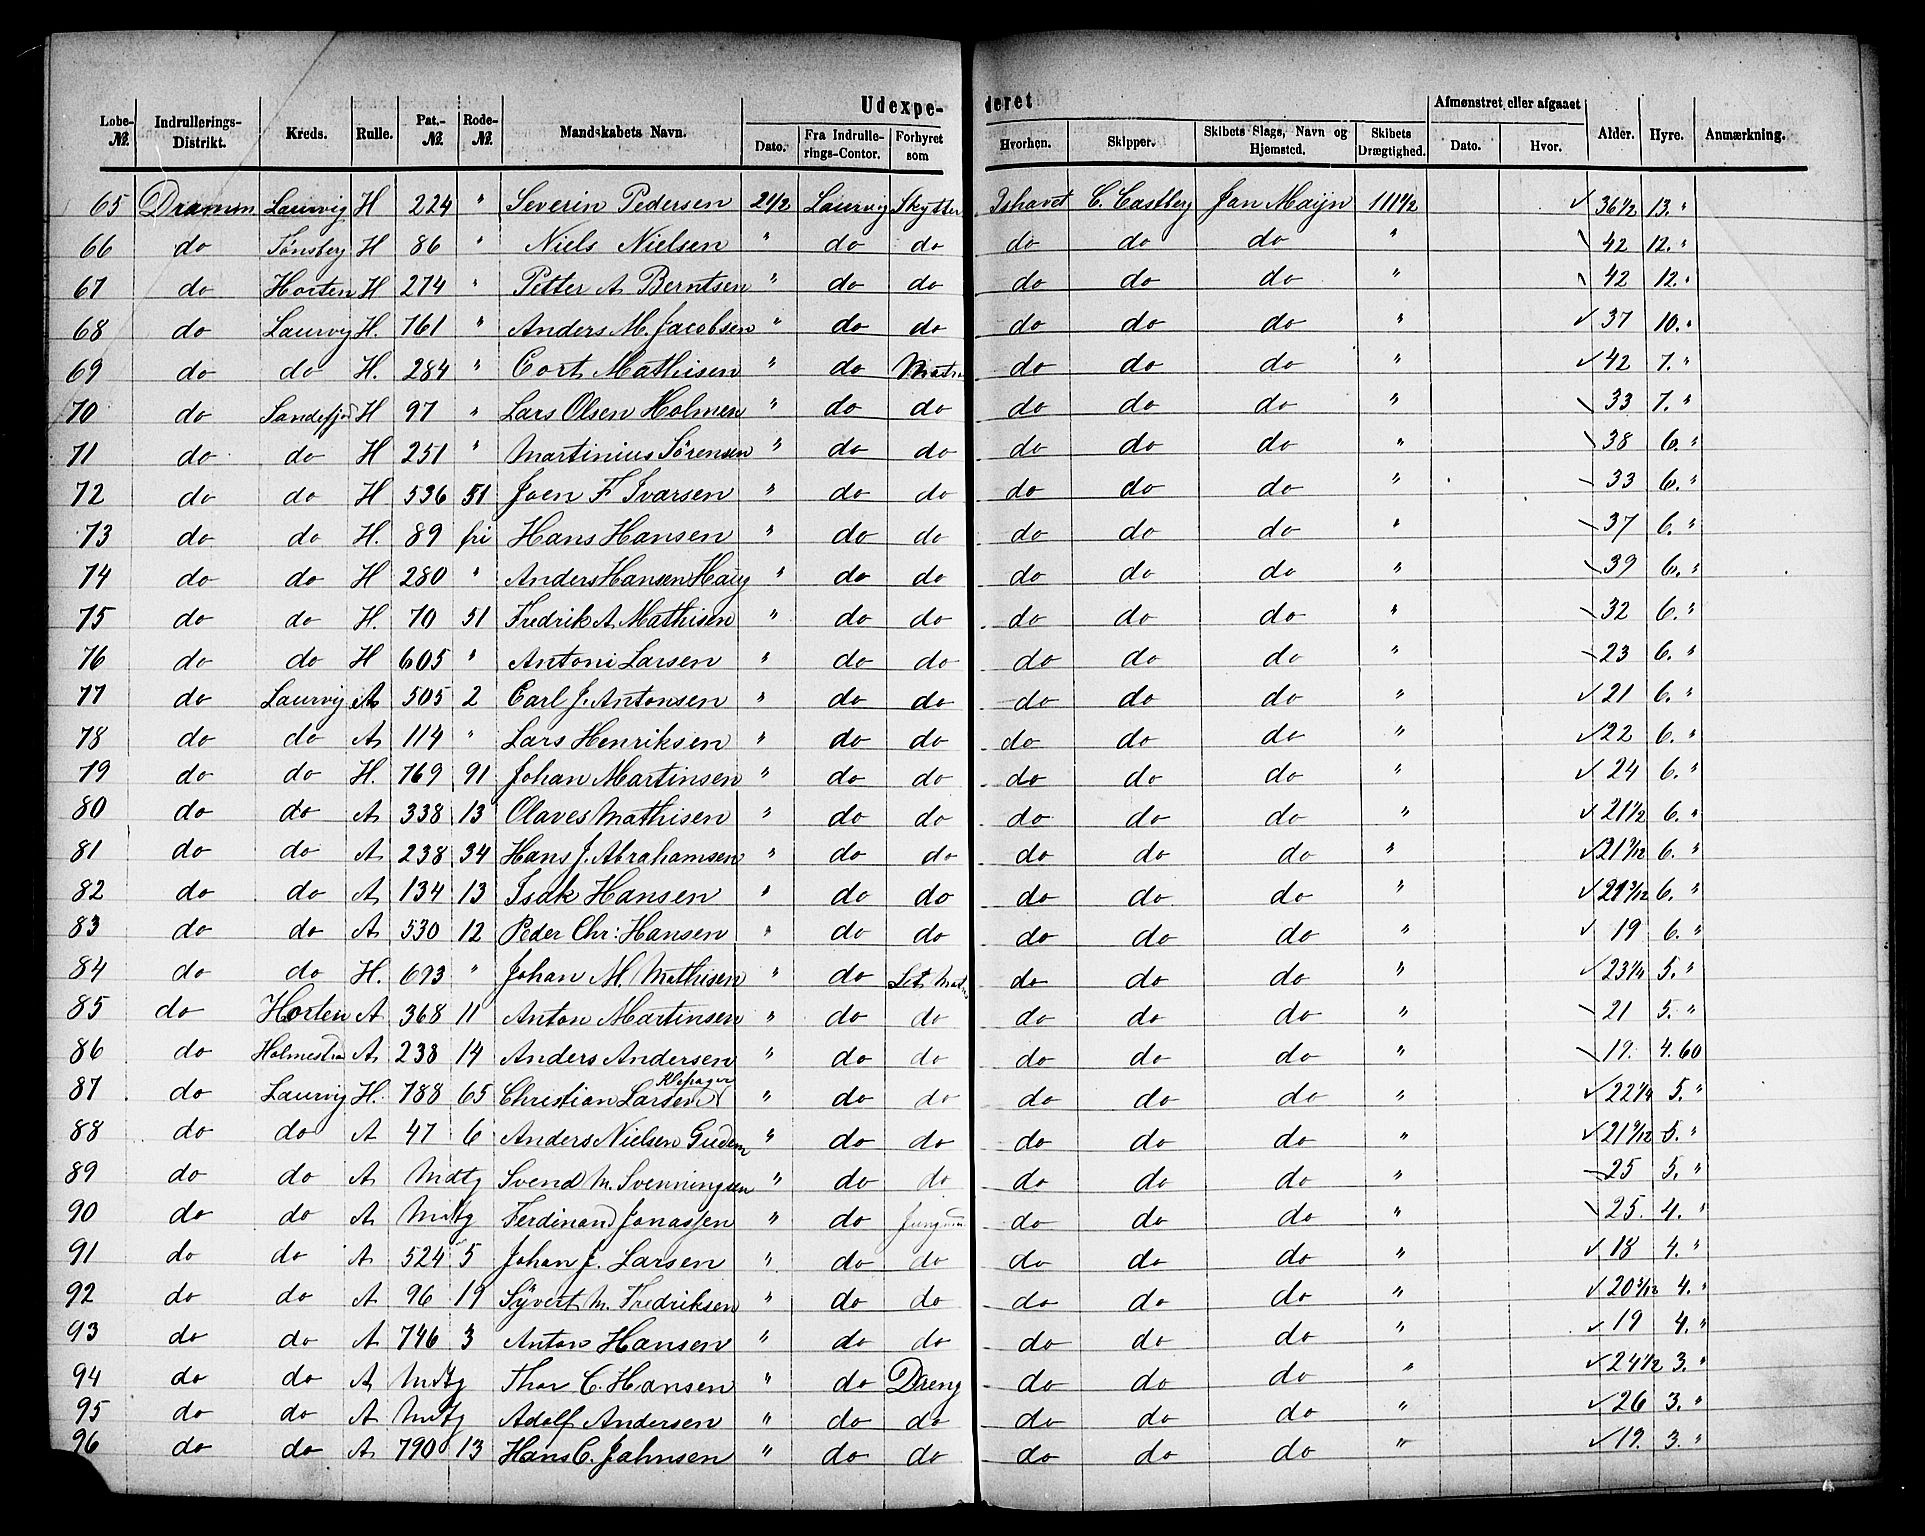 Udexpe- deret
Lobe- №. Indrullerings- Distrikt. Kreds. Rulle. Pat.- №. Rode- №. Mandskabets Navn. Dato. Fra Indrulle- rings-Contor. Forhyret som Hvorhen. Skipper. Skibets Slags, Navn og Hjemsted. Skibets Drægtighed. Afmønstret eller afgaaet Dato. Hvor. Alder. Hyre. Anmærkning.
65 Dramm Laurvig H 224 " Severin Pedersen 21/2 Laurvig Skytter Ishavet C. Castberg Jan Maijn 111 1/2 ✓ 36 1/2 13. "
66 do Tønsberg H 86 " Niels Nielsen " do do do do do " \ 42 12. "
67 do Horten H 274 " Petter A Berntsen " do do do do do " \ 42 12. "
68 do Laurvig H. 761 " Anders M. Jacobsen " do do do do do " ✓ 37 10. "
69 do do H. 284 " Cort Mathisen " do Matr do do do " ✓ 42 7. "
70 do Sandefjod H 97 " Lars Olsen Holmen " do do do do do " \ 33 7. "
71 do do H 251 " Martinius Sørensen " do do do do do " \ 38 6. "
72 do do H 536 51 Joen F Ivarsen " do do do do do " \ 33 6. "
73 do do H. 89 fri Hans Hansen " do do do do do " \ 37 6. "
74 do do H 280 " Anders Hansen Haug " do do do do do " \ 39 6. "
75 do do H. 70 51 Fredrik A. Mathisen " do do do do do " \ 32 6. "
76 do do H 605 " Antoni Larsen " do do do do do " \ 23 6. "
77 do Laurvig A 505 2 Carl J. Antonsen " do do do do do " ✓ 21 6. "
78 do do A 114 " Lars Henriksen " do do do do do " ✓ 22 6. "
79 do do H. 769 91 Johan Martinsen " do do do do do " ✓ 24 6. "
80 do do A 338 13 Olaves Mathisen " do do do do do " ✓ 21 1/2 6. "
81 do do A 238 34 Hans J. Abrahamsen " do do do do do " ✓ 21 9/12 6. "
82 do do A 134 13 Isak Hansen " do do do do do " ✓ 21 3/12 6. "
83 do do A 530 12 Peder Chr: Hansen " do do do do do " ✓ 19 6. "
84 do do H. 693 " Johan M. Mathisen " do Let Matr do do do " ✓ 23 1/4 5. "
85 do Horten A 368 11 Anton Martinsen " do do do do do " \ 21 5. "
86 do Holmestra A 238 14 Anders Andersen " do do do do do " \ 19. 4.60
87 do Laurvig H. 788 65 Christian Larsen " do do do do do " ✓ 22 1/4 5. "
88 do do A 47 6 Anders Nielsen Gudem " do do do do do " ✓ 21 9/12 5. "
89 do do A Mdtg Svend M. Svenningsen " do do do do do " \ 25 5. "
90 do do A Mdtg Ferdinand Jonassen " do Jungm do do do " \ 25. 4. "
91 do do A 524 5 Johan J. Larsen " do do do do do " ✓ 18 4. "
92 do do A 96 19 Syvert M. Fredriksen " do do do do do " ✓ 20 3/12 4. "
93 do do A 746 3 Anton Hansen " do do do do do " ✓ 19 4. "
94 do do A Mdtg Thor C. Hansen " do Dreng do do do " ✓ 24 1/2 3. "
95 do do A Mdtg Adolf Andersen " do do do do do " ✓ 26 3. "
96 do do A 790 13 Hans C. Johnsen " do do do do do " ✓ 19. 3. "